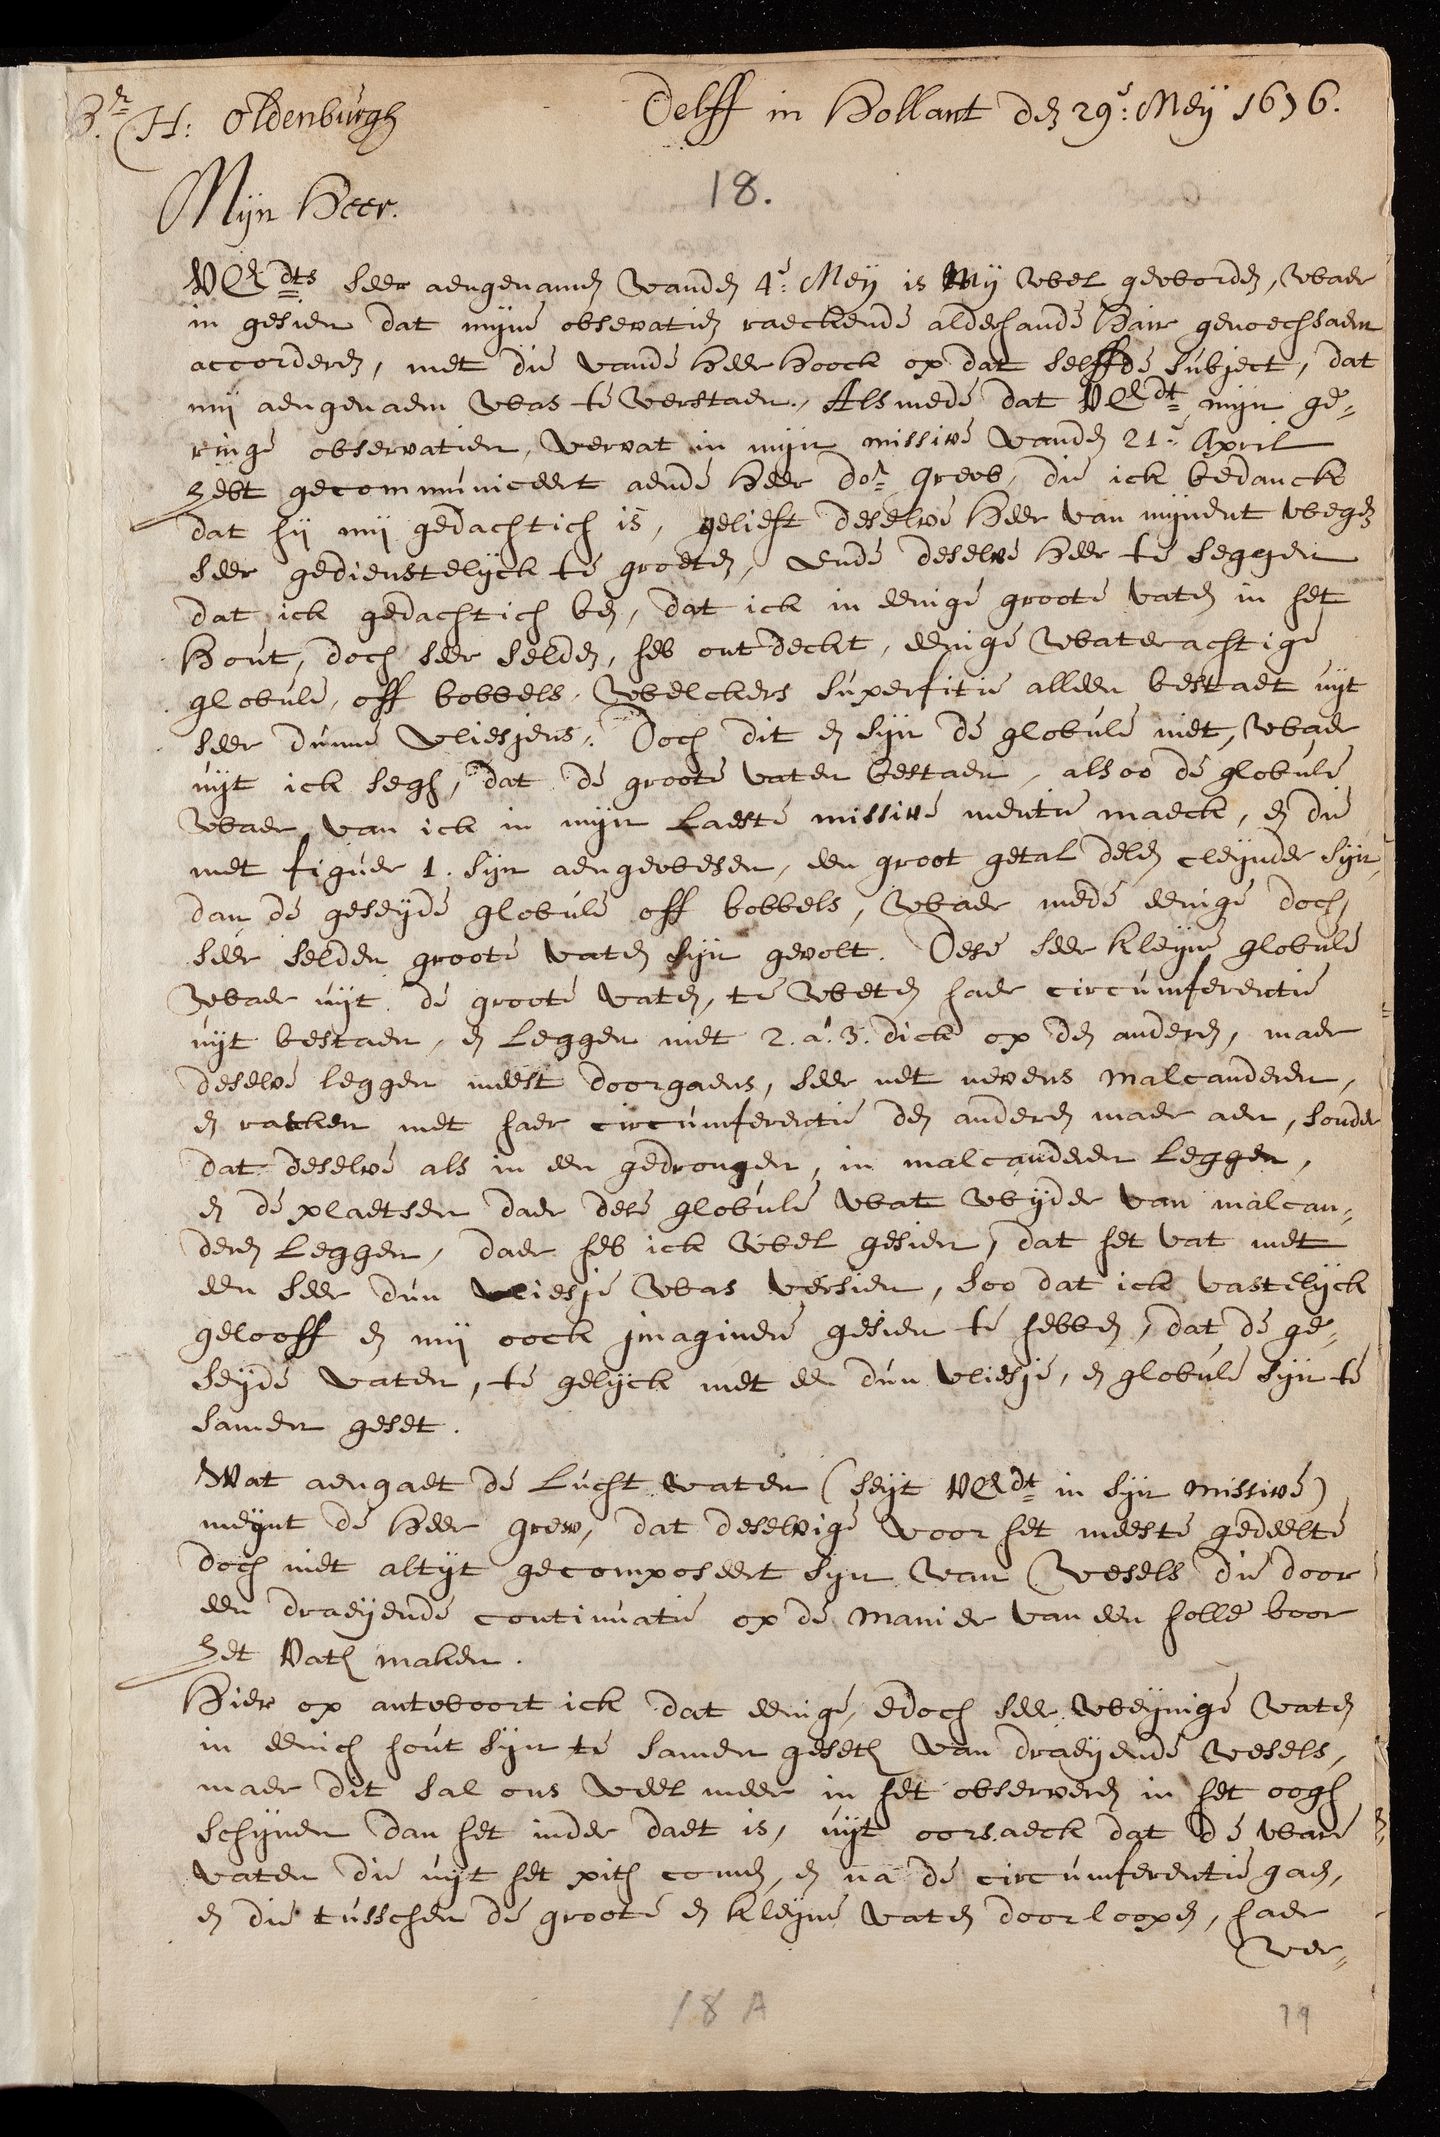 H.r H: Oldenburgh
Delff in Hollant den 29e: Meij 1676.
18.
Mijn Heer.
VEdts seer aengenamen vanden 4e: Meij is mij wel geworden, waer
in gesien dat mijne observatien raeckende alderhande Hair genoechsaem
accorderen, met die vande Heer Hoock op dat selffde subject, dat
mij aengenaem was te verstaen. Als mede dat VEdt mijn ge-
ringe observatien, vervat in mijn missive vanden 21e April
hebt gecommuniceert aende Heer Dor. Greew, die ick bedancke
dat hij mij gedachtich is, gelieft deselve Heer van mijnent wegen
seer gedienstelijck te groeten, ende deselve Heer te seggen
dat ick gedachtich ben, dat ick in eenige groote vaten in het
Hout, doch seer selden, heb ontdeckt, eenige waterachtige
globule, off bobbels, welckers superfitie alleen bestaet uijt
seer dunne vliesjens. Doch dit en sijn de globule niet, waer
uijt ick segh, dat de groote vaten bestaen, alsoo de globule
waer van ick in mijn laeste missive mentie maeck, en die
met figuer 1. sijn aengewesen, een groot getal delen cleijnder sijn,
dan de geseijde globule off bobbels, waer mede eenige doch
seer selden groote vaten sijn gevolt. Dese seer kleijne globule
waer uijt de groote vaten, te weten haer circumferentie
uijt bestaen, en leggen niet 2. a. 3. dick op den anderen, maer
deselve leggen meest doorgaens, seer net nevens malcanderen,
en raecken met haer circumferentie den anderen maer aen, sonder
dat deselve als in een gedrongen, in malcanderen leggen,
en de plaetsen daer dese globule wat wijder van malcan-
deren leggen, daer heb ick wel gesien, dat het vat met
een seer dun vliesje was versien, soo dat ick vastelijck
gelooff en mij oock imaginere gesien te hebben, dat de ge-
seijde vaten, te gelijck met een dun vliesje, en globule sijn te
samen geset.
Wat aengaet de Lucht vaten (seijt VEdt in sijn missive)
meijnt de Heer Grew, dat deselvige voor het meeste gedeelte
doch niet altijt gecomposeert sijn van vesels die door
een draeijende continuatie op de manier van een holle boor
het vath maken.
Hier op antwoort ick dat eenige, edoch seer weijnige vaten
in eenich hout sijn te samen geseth van draeijende vesels,
maer dit sal ons veel meer in het observeren in het oogh
schijnen dan het inder daet is, uijt oorsaeck dat de ware
vaten die uijt het pith comen, en na de circumferentie gaen,
en die tusschen de groote en kleijne vaten doorloopen, haer
ver-
18 A
79